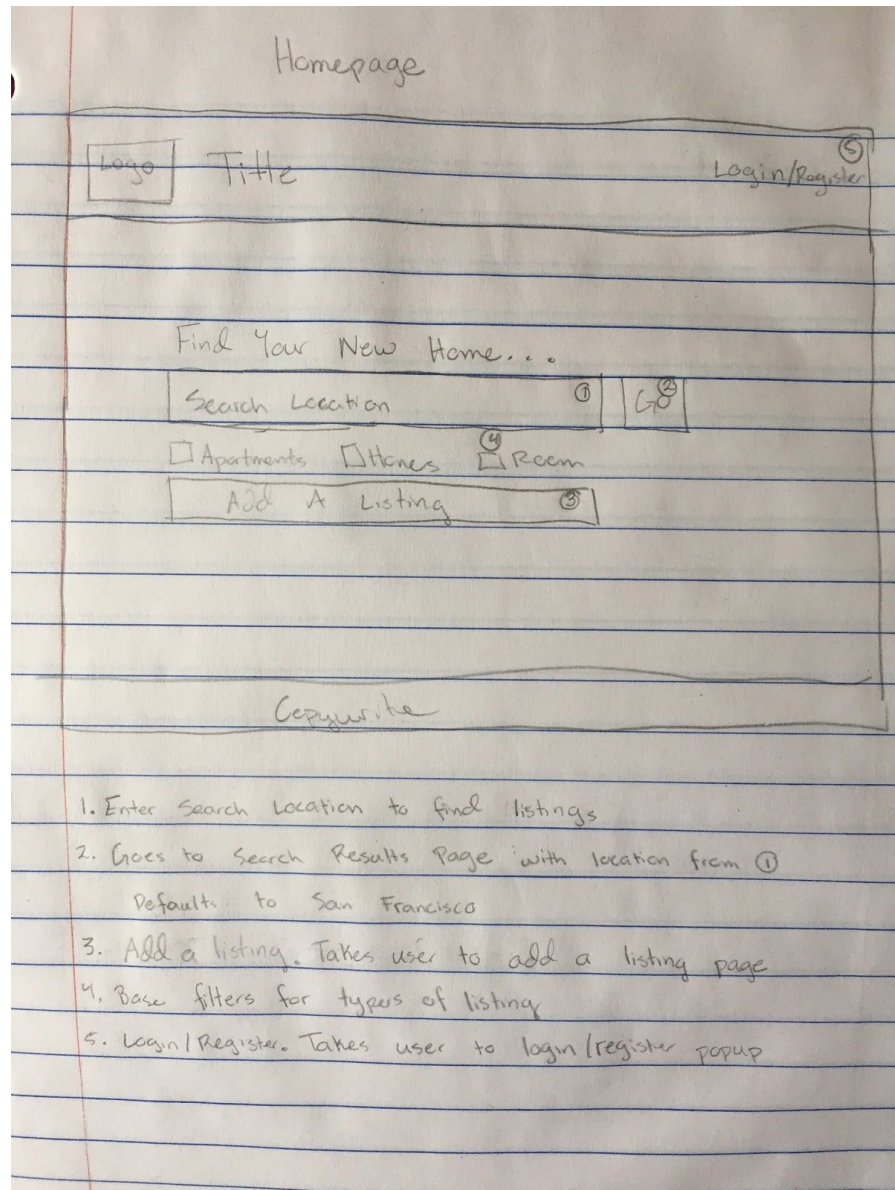 Homepage
Logo Title Login/Register ⑤
Find Your New Home...
Search Location ① GO ②
④
Apartments Homes Room
Add A Listing ③
Copywrite
1. Enter Search Location to find listings
2. Goes to Search Results Page with location from ①
Defaults to San Francisco
3. Add a listing. Takes user to add a listing page
4. Base filters for types of listing
5. Login/Register. Takes user to login/register popup